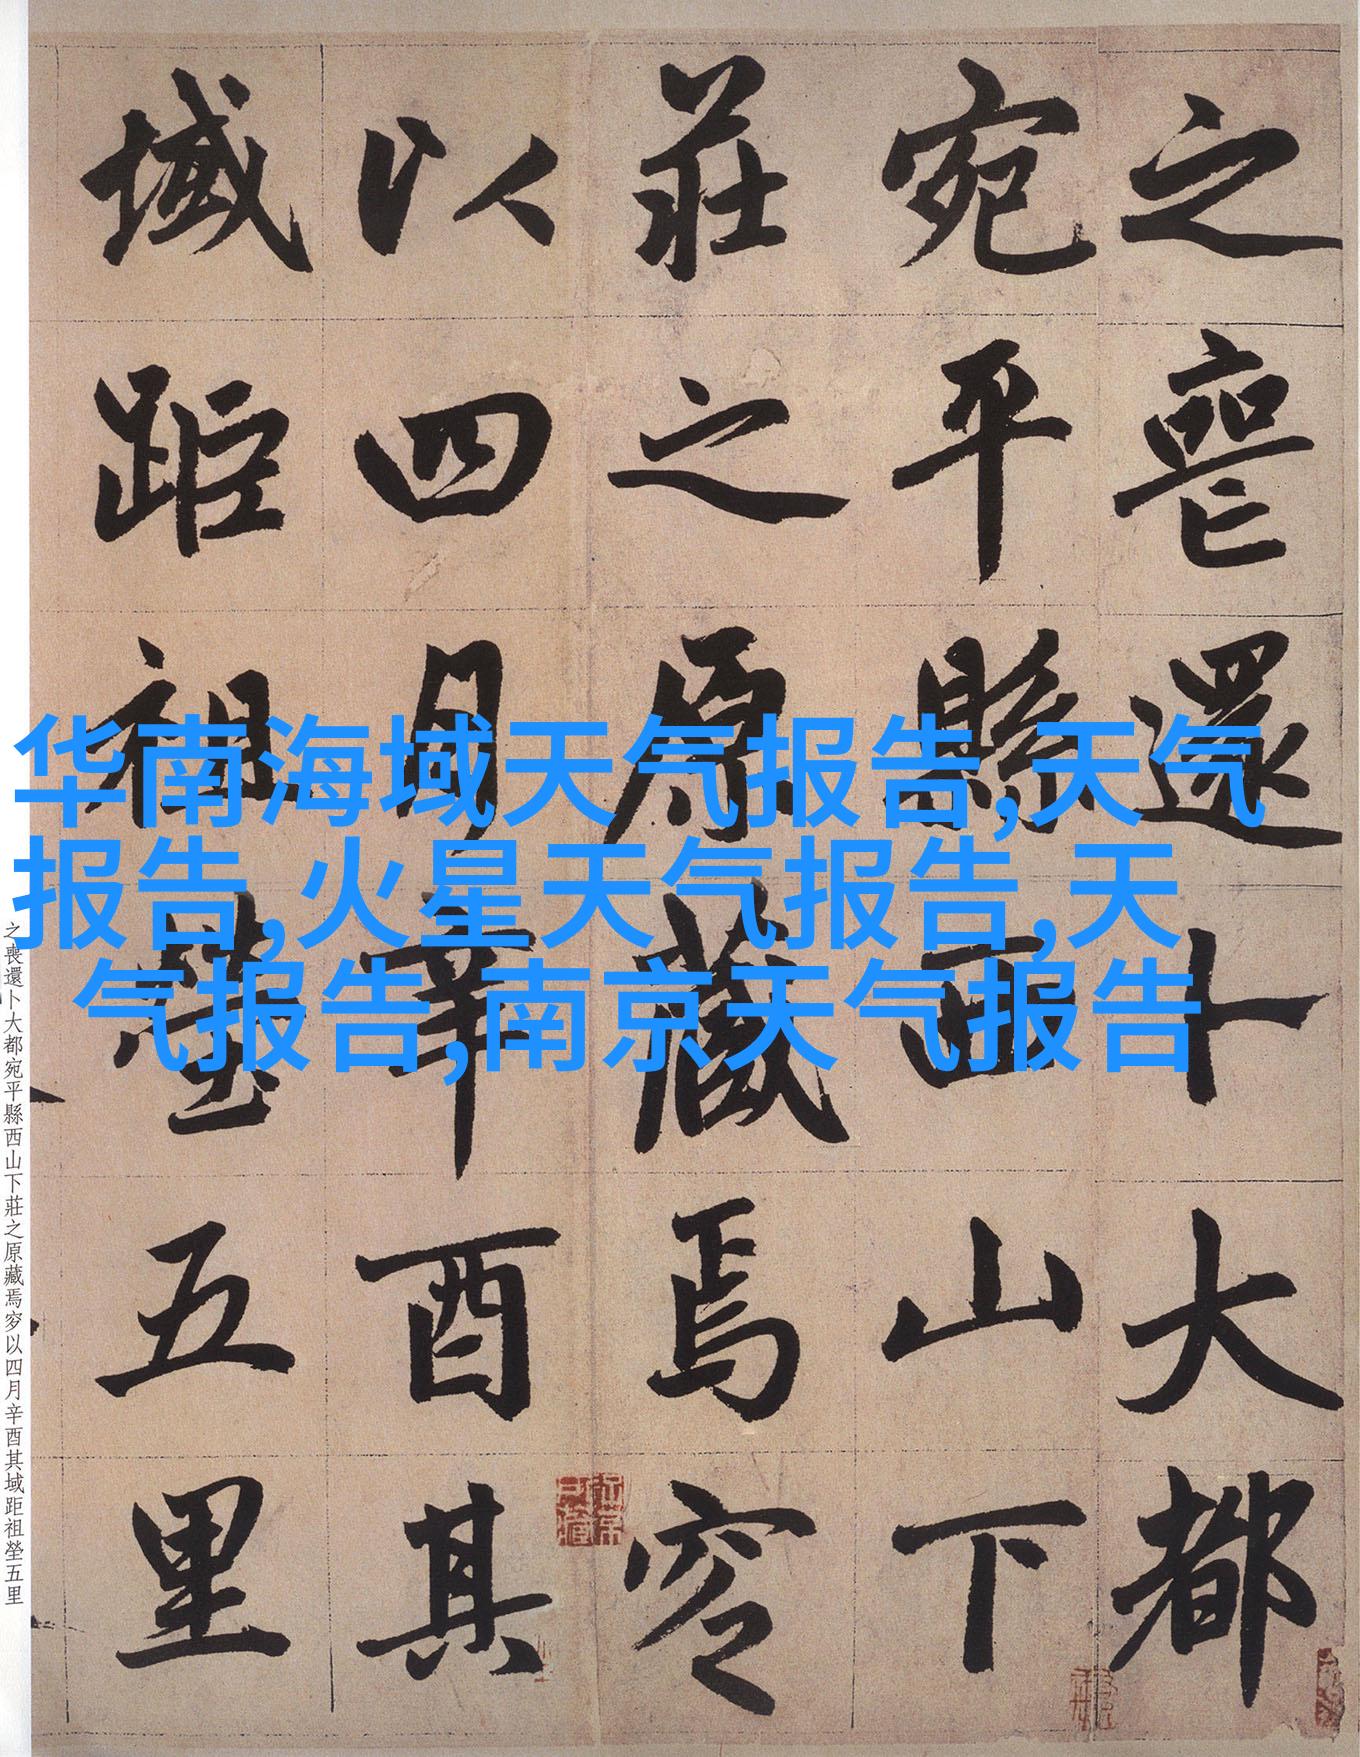 之喪還卜大都
宛平縣西山下
莊之原藏焉穸
以四月辛酉其
域距祖塋五里
华南海域天气报告,天气
报告,火星天气报告,天
气报告,南京天气报告
之喪還卜大都宛平縣西山下莊之原藏焉穸以四月辛酉其域距祖塋五里